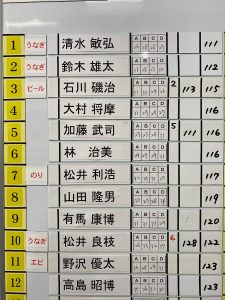 1 うなぎ 清水 敏弘 A B C D 111
2 うなぎ 鈴木 雄太 A B C D 112
3 ビール 石川 磯治 A B C D 2 113 115
4 大村 将摩 A B C D 116
5 加藤 武司 A B C D 5 111 116
6 林 治美 A B C D 116
7 のり 松井 利浩 A B C D 117
8 山田 隆男 A B C D 119
9 有馬 康博 A B C D 120
10 うなぎ 松井 良枝 A B C D 6 128 122
11 エビ 野沢 優太 A B C D 123
12 高島 昭博 A B C D 123